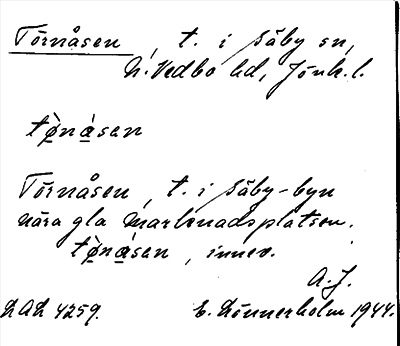 Törnåsen, t. i Säby sn,
N. Vedbo hd, Jönk. l.
tø̀nåsan
Törnåsen, t. i Säby-byn
nära gla marknadsplatsen.
tø̀nåsan, innev.
A. J.
LAL 4259. E. Lönnerholm 1944.